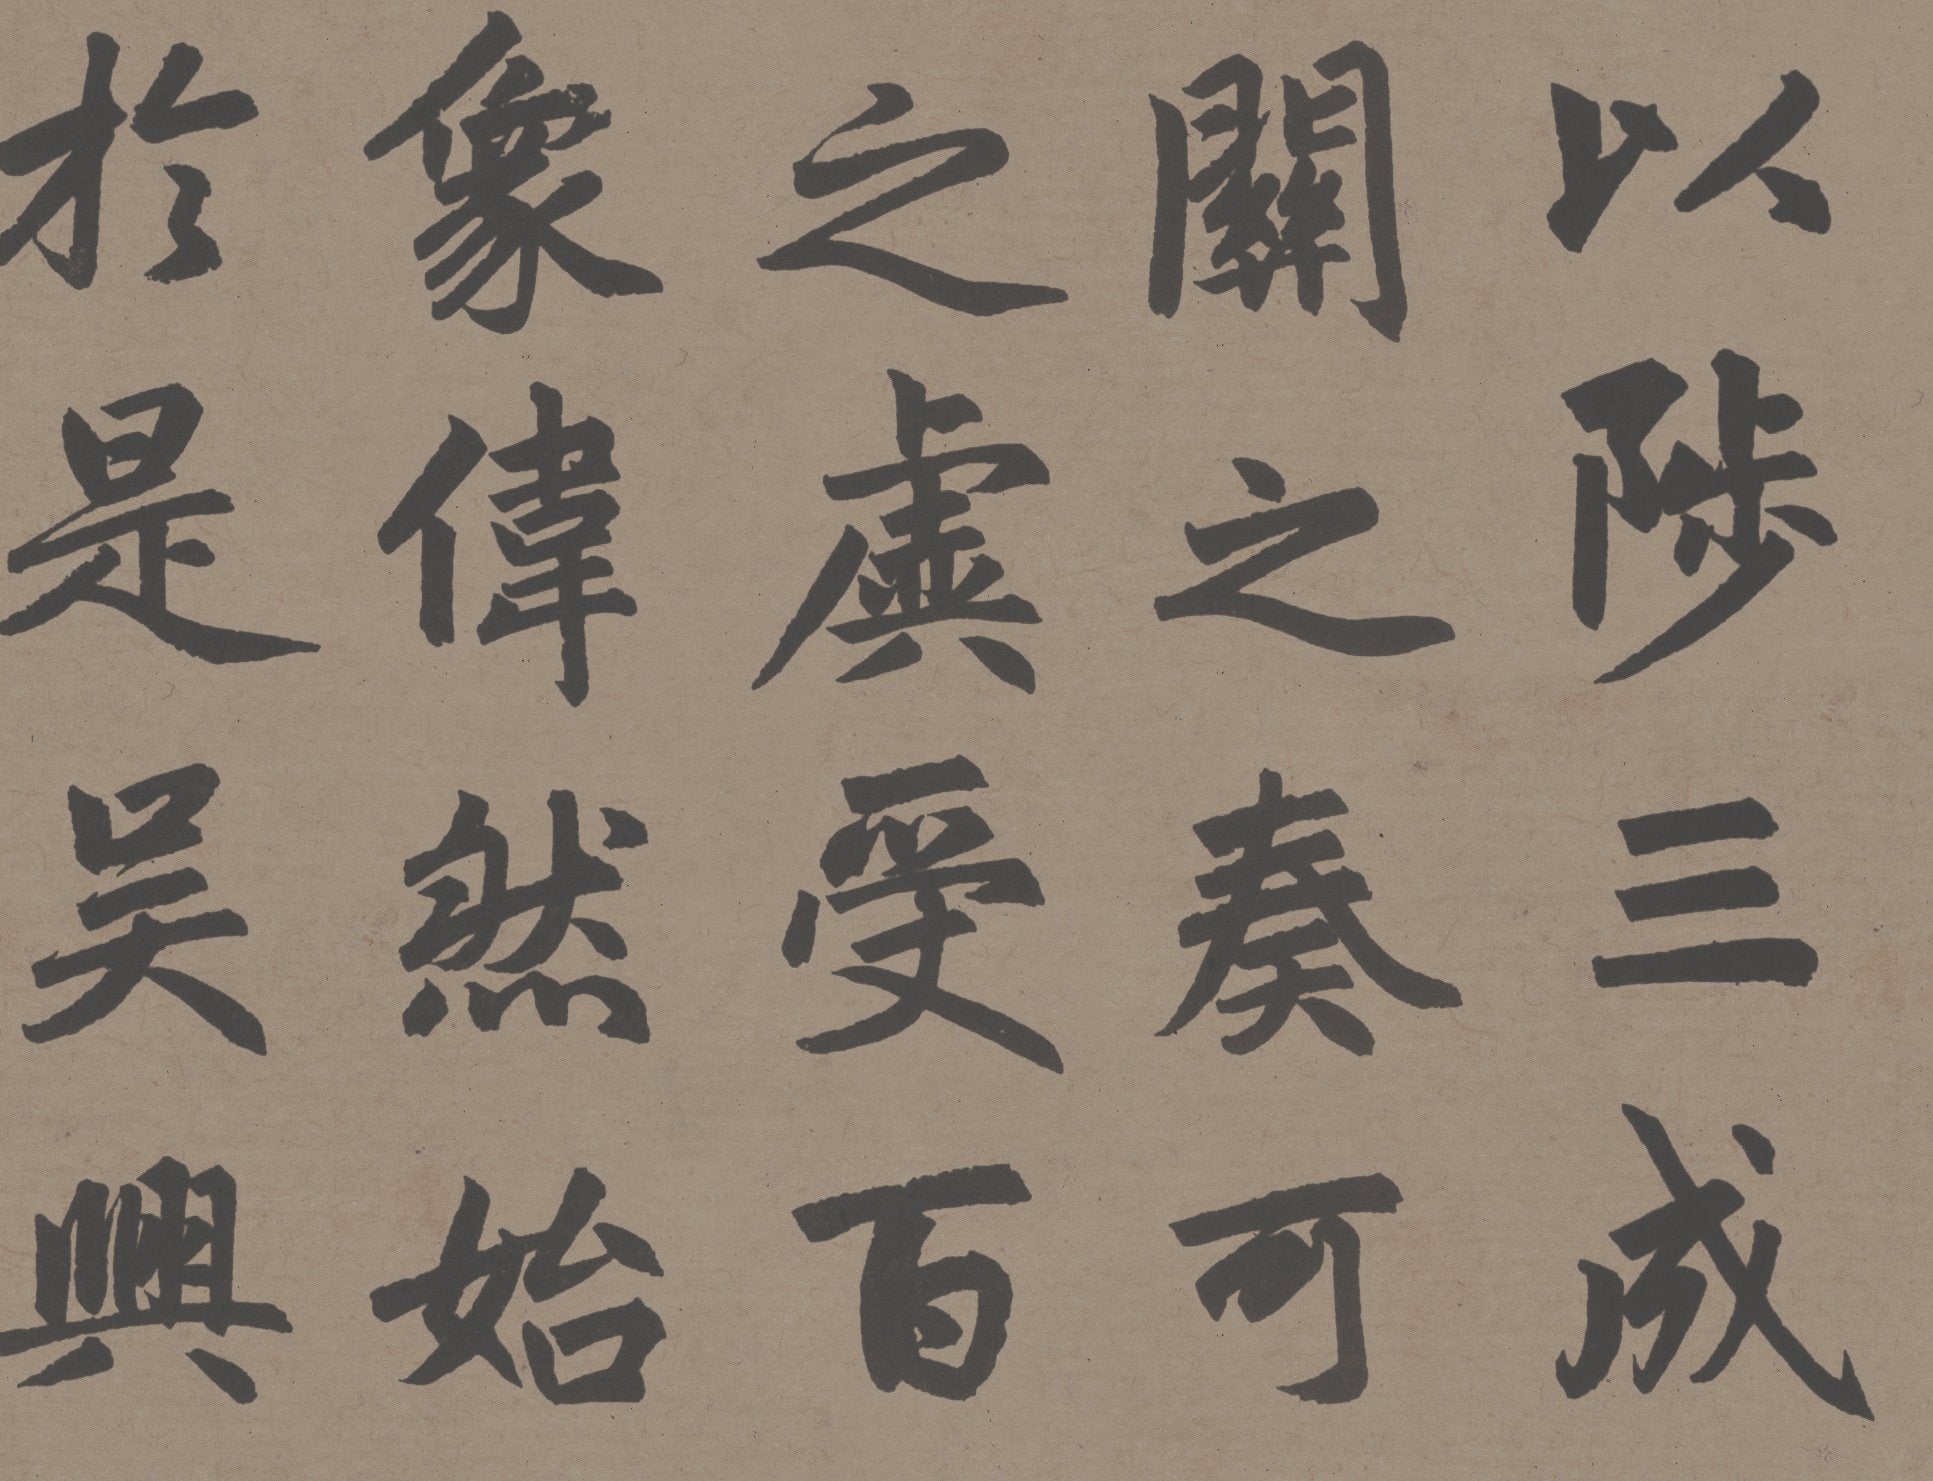 以陟三成
關之奏可
之虛受百
象偉然始
於是吳興